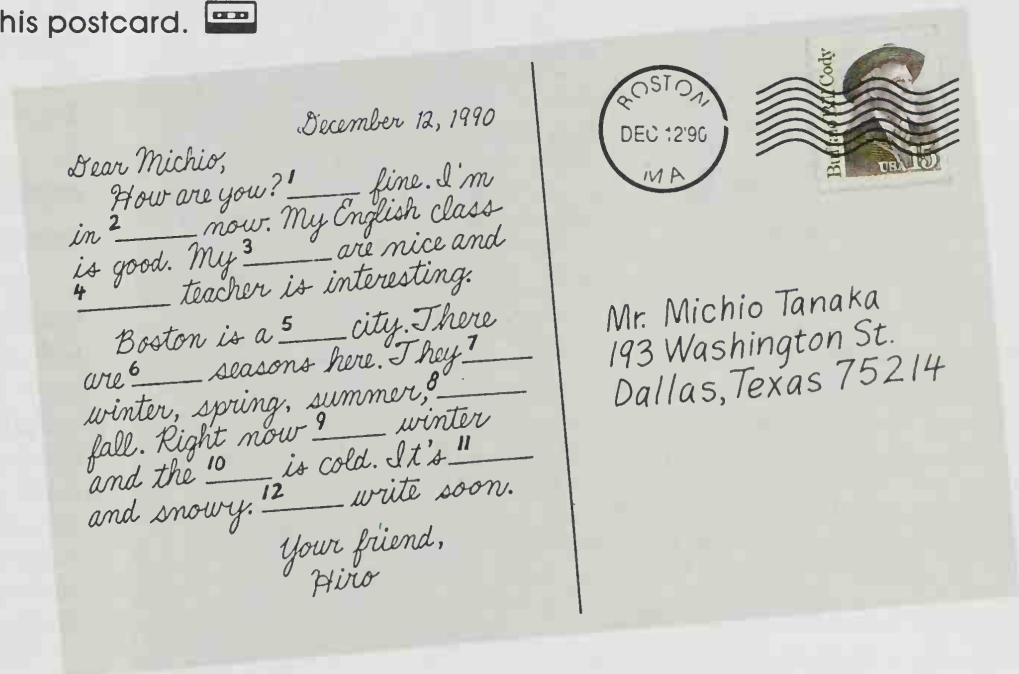 his postcard.
December 12, 1990
Dear Michio,
How are you? 1 _____ fine. I'm
in 2 _____ now. My English class
is good. My 3 _____ are nice and
4 _____ teacher is interesting.
Boston is a 5 _____ city. There
are 6 _____ seasons here. They 7 _____
winter, spring, summer, 8 _____
fall. Right now 9 _____ winter
and the 10 _____ is cold. It's 11 _____
and snowy. 12 _____ write soon.
Your friend,
Hiro
BOSTON
DEC 12'90
MA
Buffalo Bill Cody
USA 15
Mr. Michio Tanaka
193 Washington St.
Dallas, Texas 75214